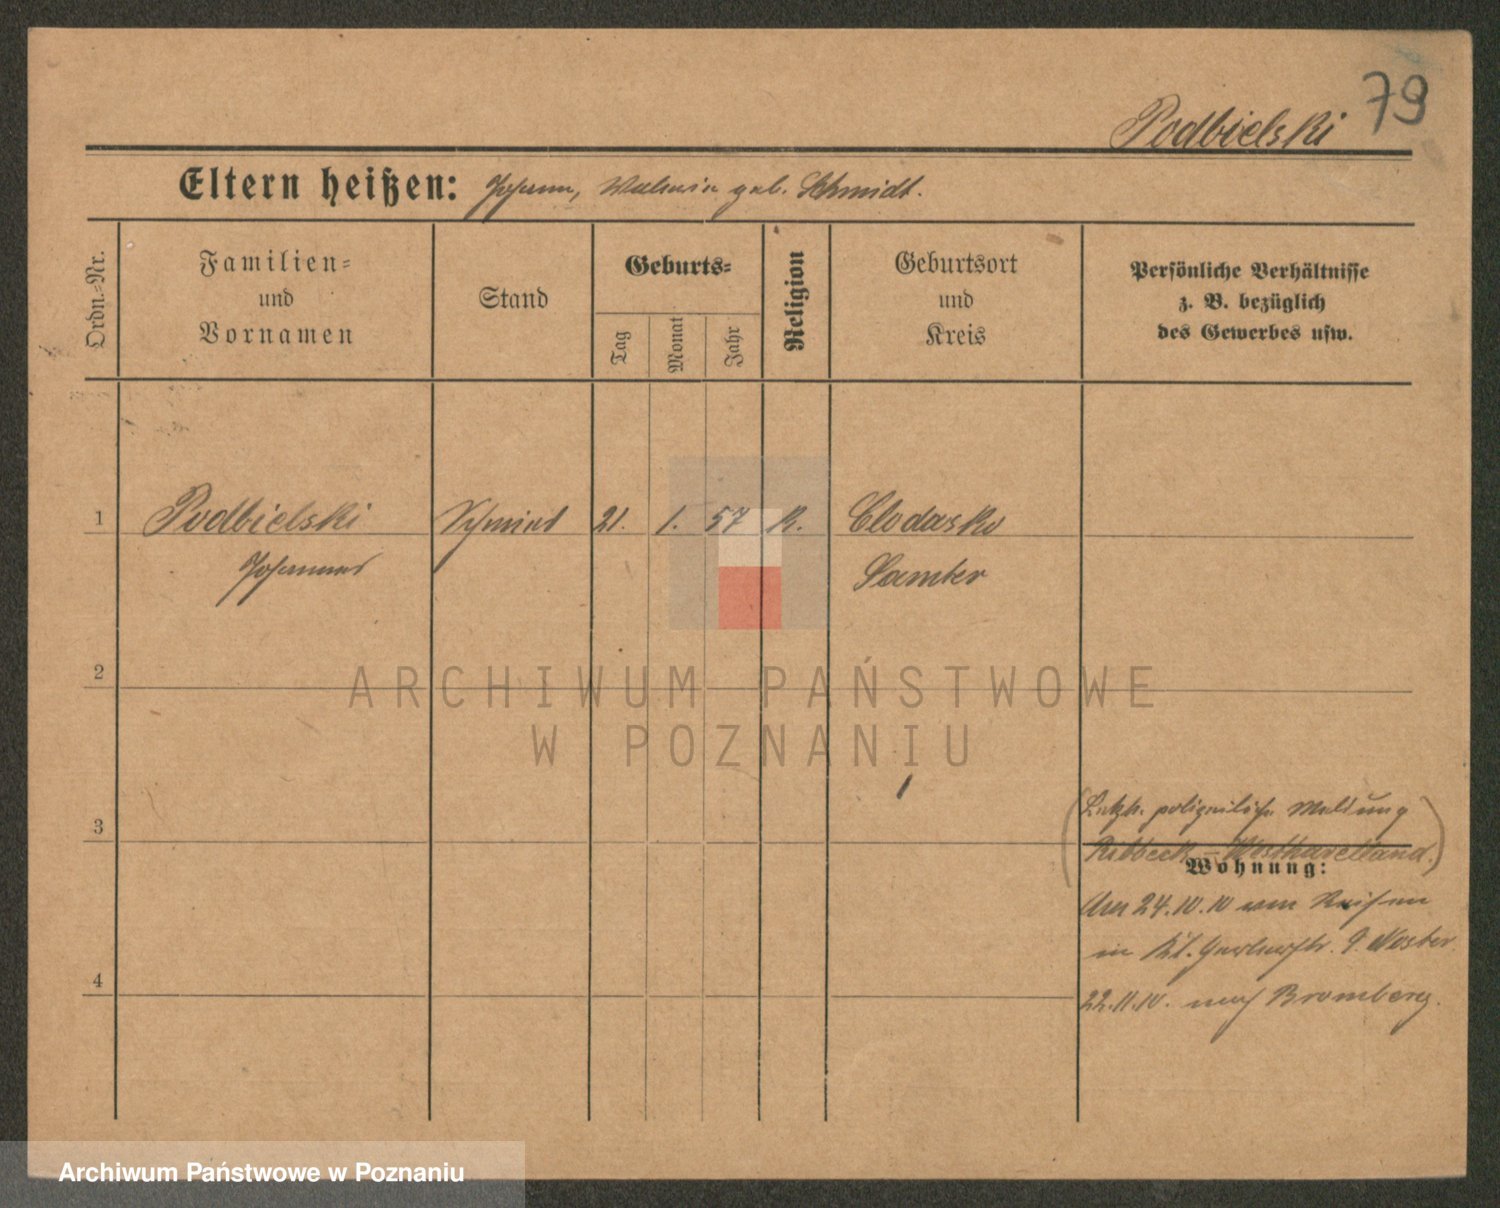 79
Podbielski
Eltern heißen: Johann, geb. Schmidt.
Ordn.-Nr.
Familien-
und
Vornamen
Stand
Geburts-
Tag
Monat
Jahr
Religion
Geburtsort
und
Kreis
Persönliche Verhältnisse
z. B. bezüglich
des Gewerbes usw.
1 Podbielski Schmied 21. 1. 57 K.
Johannes Samter
2
ARCHIWUM PAŃSTWOWE
W POZNANIU
3
(Letzte polizeiliche Meldung
Ribbeck - Westhavelland.)
Wohnung:
Am 24.10.10 von Reisen
in Kl. Gerberstr. 9
4
22.11.10. nach Bromberg.
Archiwum Państwowe w Poznaniu